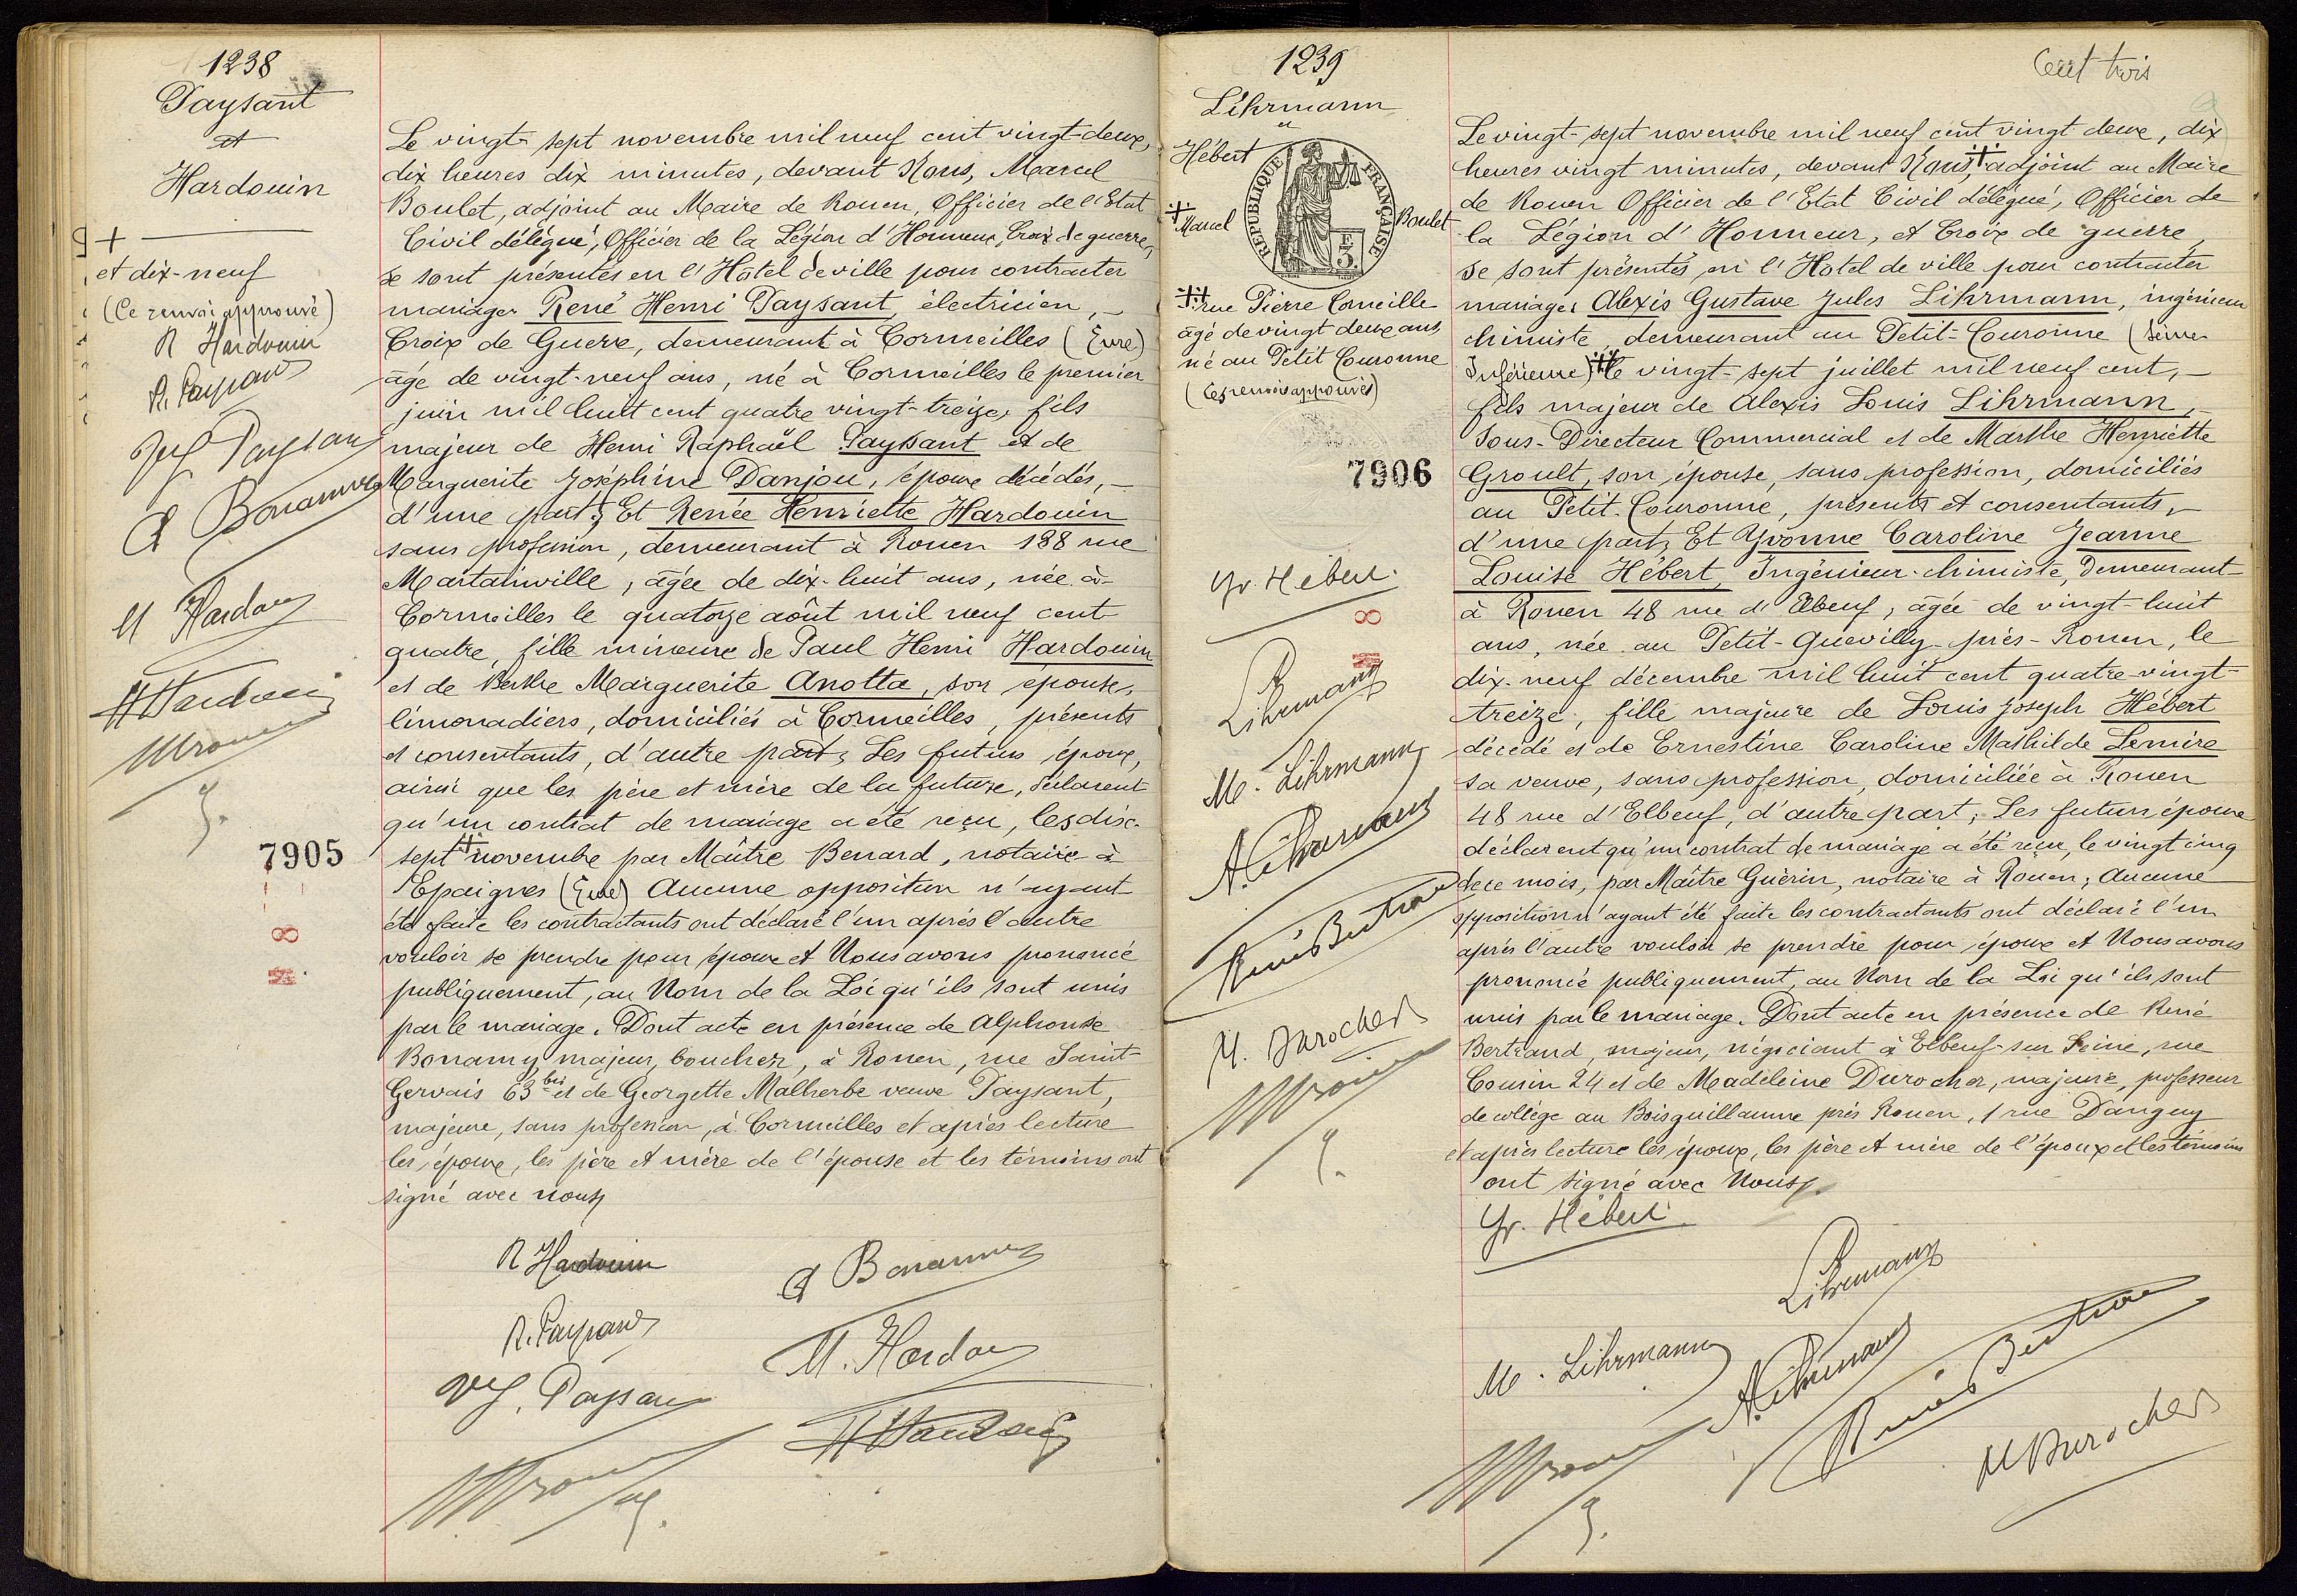 1238
Paysant
et
Hardouin
+
et dix-neuf
(Ce renvoi approuvé)
R Hardouin
R. Paysant
A Bonamy
7905
8
Le vingt-sept novembre mil neuf cent vingt-deux,
dix heures dix minutes, devant Nous, Marcel
Boulet, adjoint au Maire de Rouen, Officier de l'Etat
Civil délégué, Officier de la Légion d'Honneur, Croix de guerre,
se sont présentés en l'Hôtel de ville pour contracter
mariage, René Henri Paysant, électricien,
Croix de Guerre, demeurant à Cormeilles (Eure)
âgé de vingt-neuf ans, né à Cormeilles le premier
juin mil huit cent quatre vingt-treize, fils
majeur de Henri Raphaël Paysant et de
Marguerite Joséphine Danjou, époux décédés,
d'une part; Et Renée Henriette Hardouin
sans profession, demeurant à Rouen 188 rue
Martainville, âgée de dix-huit ans, née à
Cormeilles le quatorze août mil neuf cent
quatre, fille mineure de Paul Henri Hardouin
et de Berthe Marguerite Anotta, son épouse,
limonadiers, domiciliés à Cormeilles, présents
et consentants, d'autre part; Les futurs époux,
ainsi que les père et mère de la future, déclarent
qu'un contrat de mariage a été reçu, les dix-
sept + novembre par Maître Benard, notaire à
Epaignes (Eure) Aucune opposition n'ayant
été faite les contractants ont déclaré l'un après l'autre
vouloir se prendre pour époux et Nous avons prononcé
publiquement, au Nom de la Loi qu'ils sont unis
par le mariage. Dont acte en présence de Alphonse
Bonamy, majeur, boucher, à Rouen, rue Saint-
Gervais 63 bis et de Georgette Malherbe veuve Paysant,
majeure, sans profession, à Cormeilles et après lecture
les époux, les père et mère de l'épouse et les témoins ont
signé avec nous
R Hardouin
A Bonamy
R. Paysant
Vve. Paysant
1239
Lihrmann
et
Hébert
RÉPUBLIQUE FRANÇAISE
F
3
‡ Marcel Boulet
‡ rue Pierre Corneille
âgé de vingt deux ans
né au Petit Couronne
(Ces renvois approuvés)
7906
8
Yv. Hébert
Lihrmann
M. Lihrmann
A. Lihrmann
René Bertrand
M. Durocher
Cent trois
Le vingt-sept novembre mil neuf cent vingt deux, dix
heures vingt minutes, devant Nous, ‡ adjoint au Maire
de Rouen Officier de l'Etat Civil délégué, Officier de
la Légion d'Honneur, et Croix de guerre,
se sont présentés en l'Hôtel de ville pour contracter
mariage, Alexis Gustave Jules Lihrmann, ingénieur
chimiste, demeurant au Petit-Couronne (Seine
Inférieure) ‡ le vingt-sept juillet mil neuf cent,
fils majeur de Alexis Louis Lihrmann,
Sous-Directeur Commercial et de Marthe Henriette
Groult, son épouse, sans profession, domiciliés
au Petit-Couronne, présents et consentants,
d'une part; Et Yvonne Caroline Jeanne
Louise Hébert, Ingénieur-chimiste, demeurant
à Rouen 48 rue d'Elbeuf, âgée de vingt-huit
ans, née au Petit-Quevilly près-Rouen, le
dix-neuf décembre mil huit cent quatre-vingt-
treize, fille majeure de Louis Joseph Hébert
décédé et de Ernestine Caroline Mathilde Lemire
sa veuve, sans profession, domiciliée à Rouen
48 rue d'Elbeuf, d'autre part; Les futurs époux
déclarent qu'un contrat de mariage a été reçu, le vingt cinq
de ce mois, par Maître Guérin, notaire à Rouen; Aucune
opposition n'ayant été faite les contractants ont déclaré l'un
après l'autre vouloir se prendre pour époux et Nous avons
prononcé publiquement, au Nom de la Loi qu'ils sont
unis par le mariage. Dont acte en présence de René
Bertrand, majeur, négociant à Elbeuf-sur Seine, rue
Cousin 24 et de Madeleine Durocher, majeure, professeur
de collège au Boisguillaume près Rouen, 1 rue Danguy
et après lecture les époux, les père et mère de l'époux et les témoins
ont signé avec Nous.
Yv. Hébert
Lihrmann
M. Lihrmann
A. Lihrmann
René Bertrand
M Durocher